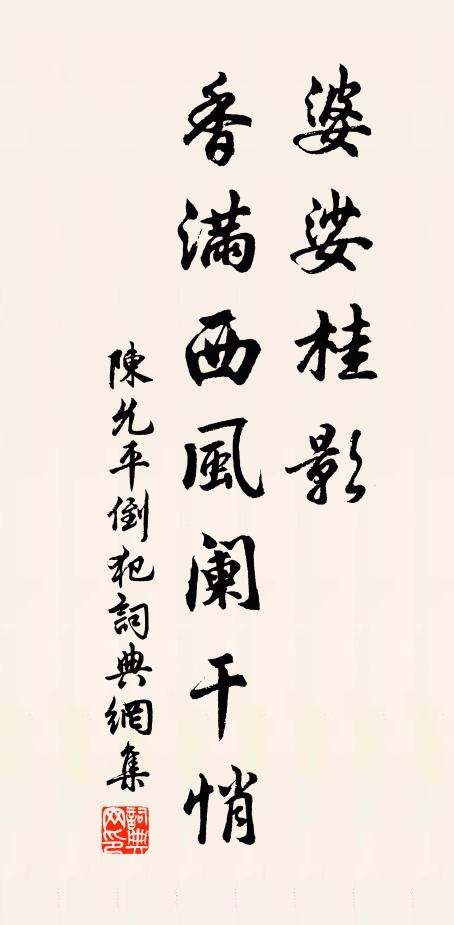 婆娑桂影
香滿西風闌干悄
陳允平倒犯詞典網集
詞典網印